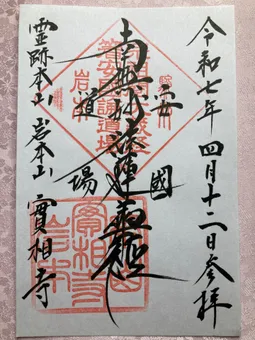 令和七年四月十二日参拝
安國
南無妙法蓮華經
道場
靈跡本山 岩本山 實相寺